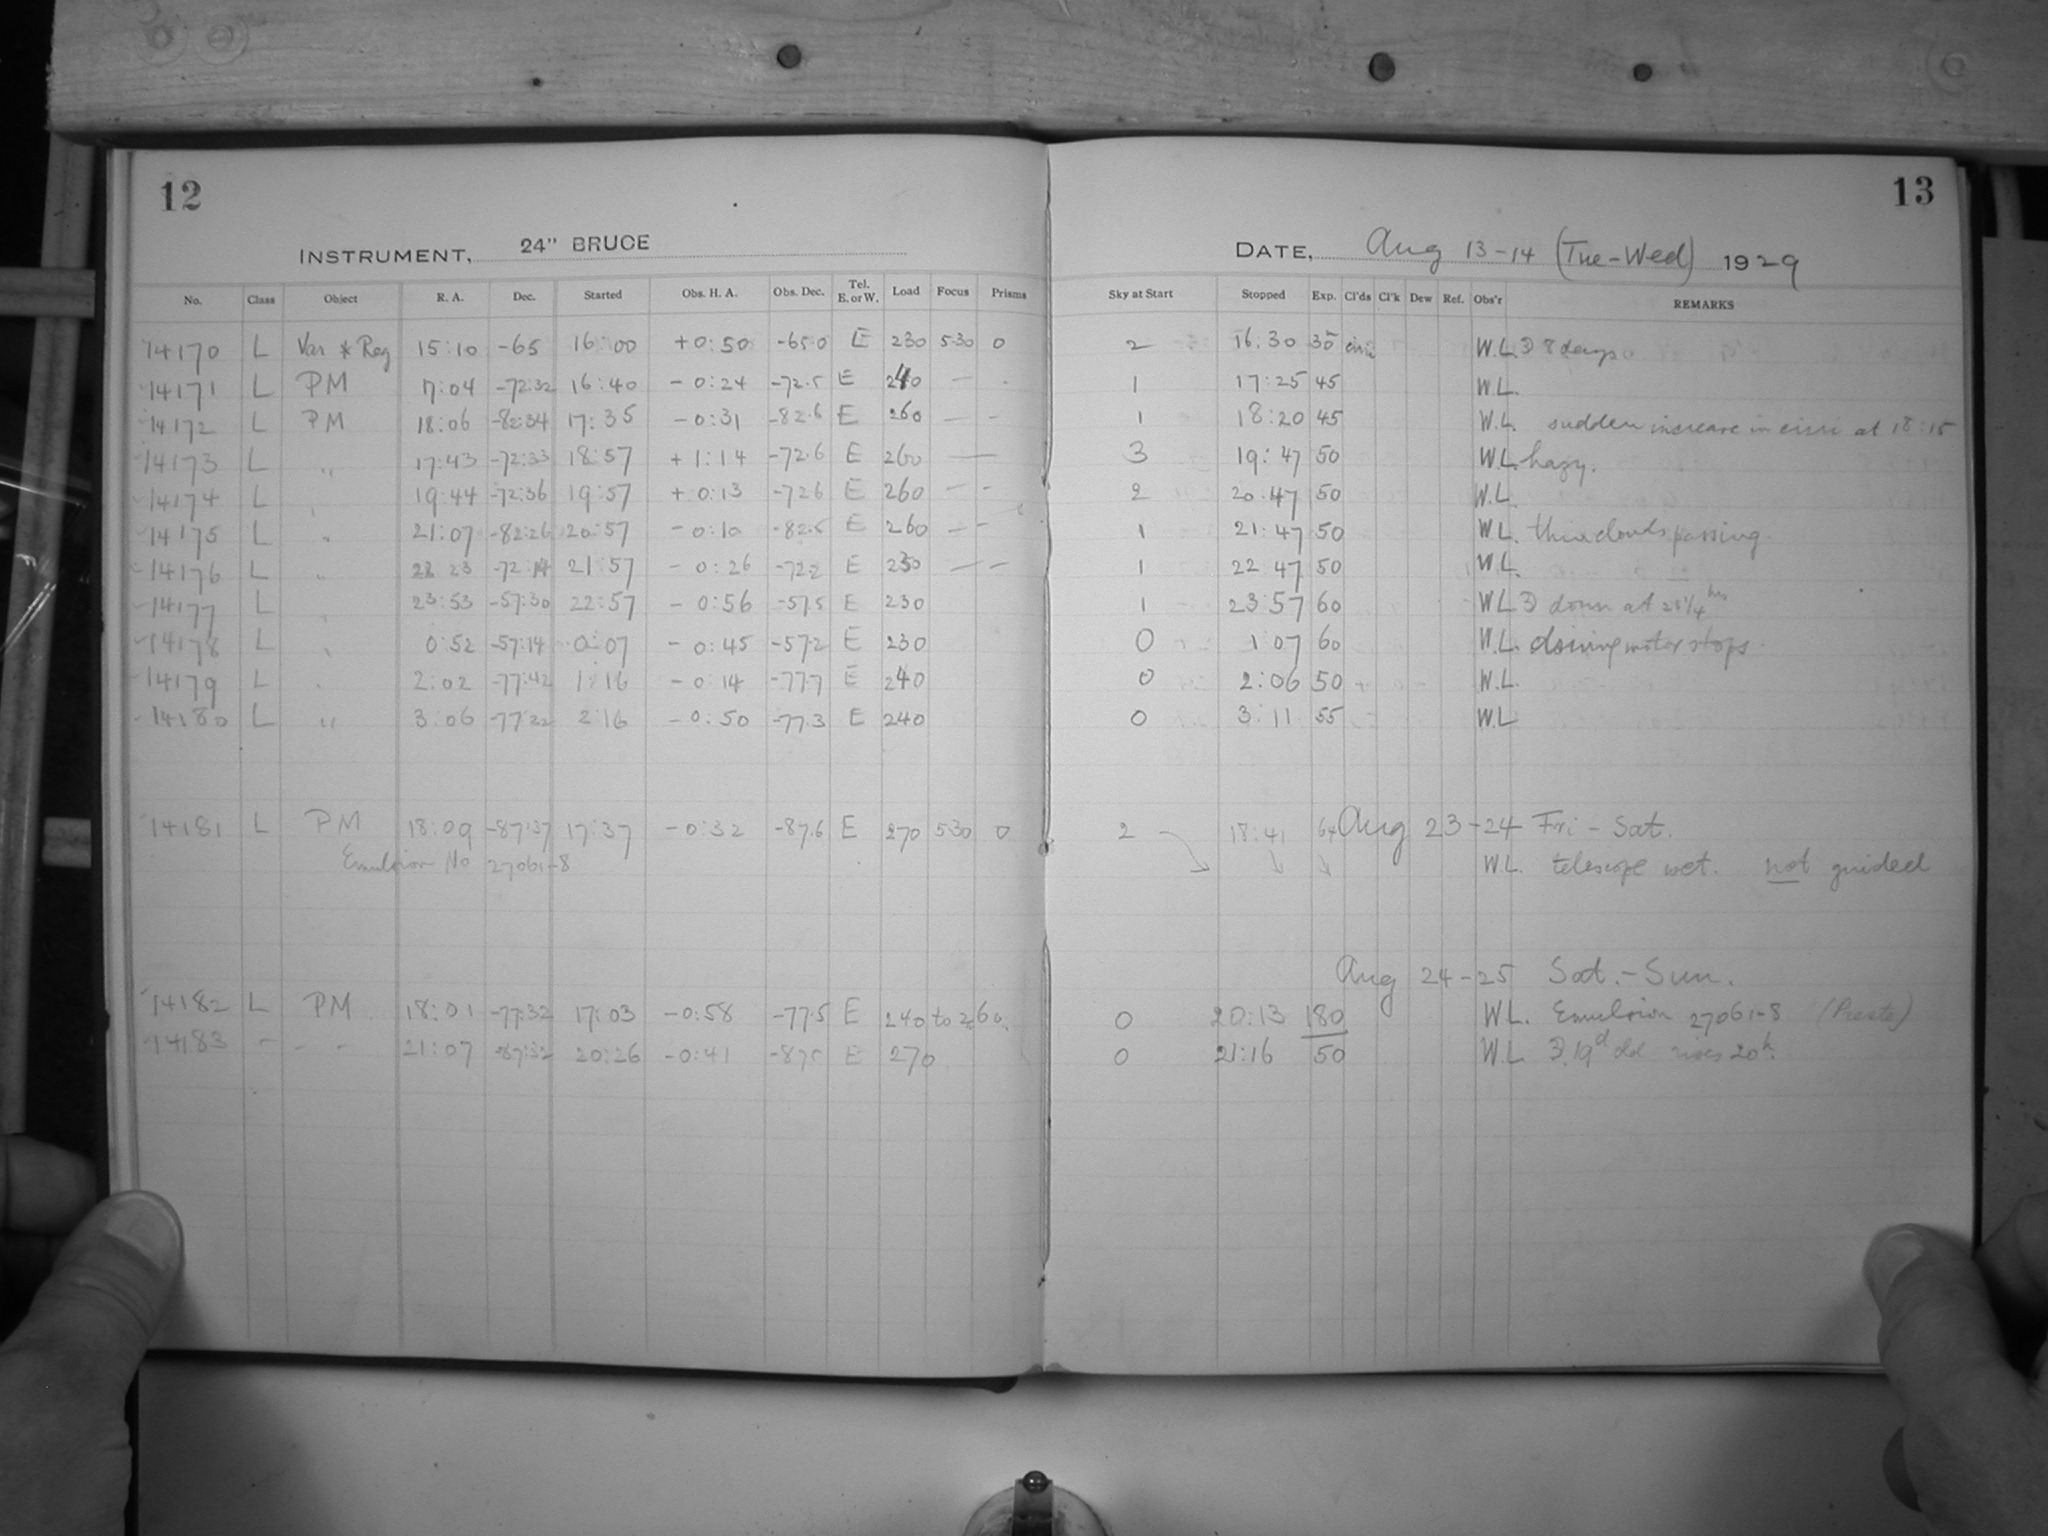 12
13
INSTRUMENT, 24" BRUCE
DATE, Aug 13-14 (Tue-Wed) 1929
No. Class Object R. A. Dec. Started Obs. H. A. Obs. Dec. Tel. E. or W. Load Focus Prisms Sky at Start Stopped Exp. Cl'ds Cl'k Dew Ref. Obs'r REMARKS
14170 L Var * Reg 15:10 -65 16:00 +0:50 -65.0 E 230 530 0 2 16:30 30 cirri W.L. 8 days
14171 L PM 17:04 -72:32 16:40 -0:24 -72.5 E 240 — - 1 17:25 45 W.L.
14172 L PM 18:06 -82:34 17:35 -0:31 -82.6 E 260 — - 1 18:20 45 W.L. sudden increase in cirri at 18:15
14173 L " 17:43 -72:33 18:57 +1:14 -72.6 E 260 — 3 19:47 50 W.L. hazy.
14174 L " 19:44 -72:36 19:57 +0:13 -72.6 E 260 — - 2 20:47 50 W.L.
14175 L " 21:07 -82:26 20:57 -0:10 -82.5 E 260 — - 1 21:47 50 W.L. thin clouds passing.
14176 L " 22 23 -72:14 21:57 -0:26 -72.2 E 250 — - 1 22 47 50 W.L.
14177 L " 23:53 -57:30 22:57 -0:56 -57.5 E 230 1 23:57 60 W.L. down at 23¼ hrs
14178 L " 0:52 -57:14 0:07 -0:45 -57.2 E 230 0 1 07 60 W.L. driving motor stops
14179 L " 2:02 -77:42 1:16 -0:14 -77.7 E 240 0 2:06 50 W.L.
14180 L " 3:06 -77:22 2:16 -0:50 -77.3 E 240 0 3:11 55 W.L.
14181 L PM 18:09 -87:37 17:37 -0:32 -87.6 E 270 530 0 2 18:41 64 Aug 23-24 Fri - Sat.
Emulsion No 27061-8 W.L. telescope wet. not guided
Aug 24-25 Sat.-Sun.
14182 L PM 18:01 -77:32 17:03 -0:58 -77.5 E 240 to 260. 0 20:13 180 W.L. Emulsion 27061-8 (Presto)
14183 - - - 21:07 -87:32 20:26 -0:41 E 270 0 21:16 50 W.L. 19d old rises 20h.